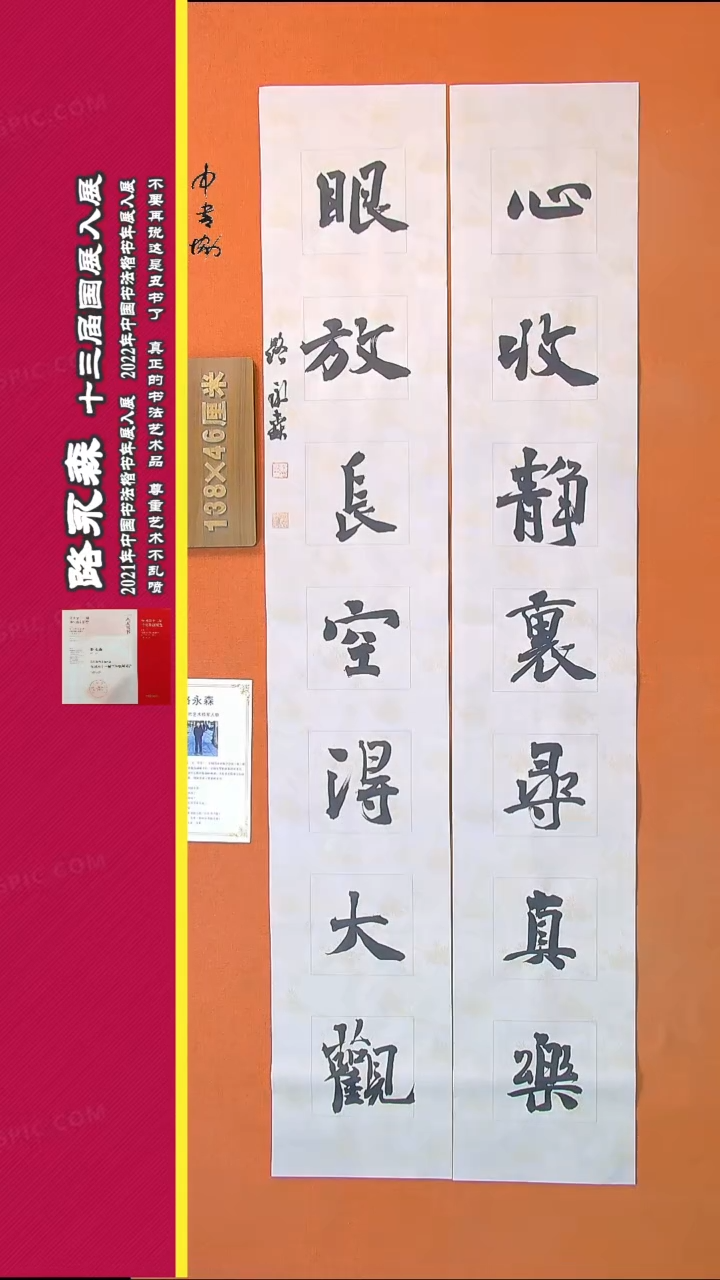 心收静裏尋真樂
眼放長空得大觀
路永森
中书协
138×46厘米
路永森 十三届国展入展
2021年中国书法楷书年展入展 2022年中国书法楷书年展入展
不要再说这是丑书了 真正的书法艺术品 尊重艺术不乱喷
路永森